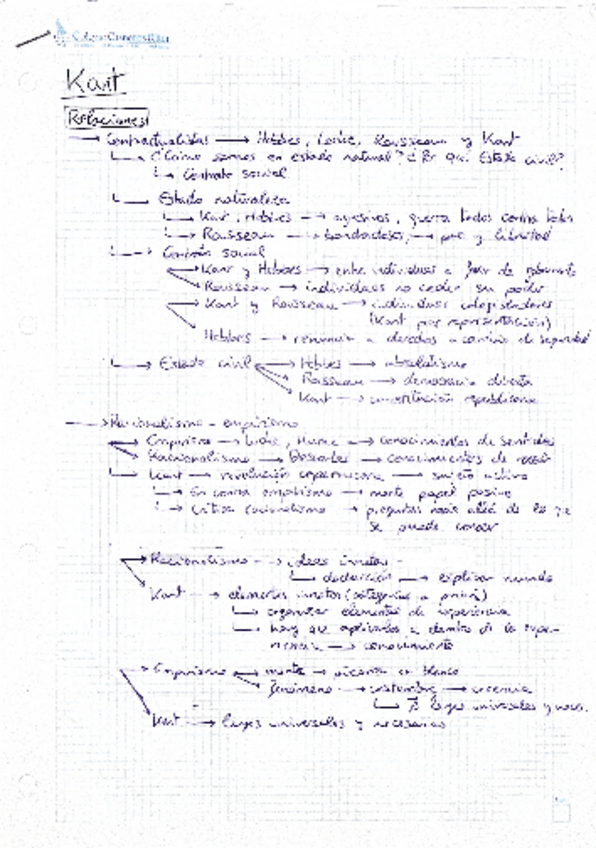 Kant
Relaciones
→ Contractualistas → Hobbes, Locke, Rousseau y Kant
↳ ¿Cómo somos en estado natural? ¿Por qué Estado civil?
↳ Contrato social
↳ Estado naturaleza
↳ Kant, Hobbes → agresivos, guerra todos contra todos
↳ Rousseau → bondadosos, → paz y libertad
↳ Contrato social
→ Kant y Hobbes → entre individuos a favor de gobernante
→ Rousseau → individuos no ceder su poder
→ Kant y Rousseau → individuos colegisladores
(Kant por representación)
Hobbes → renuncia a derechos a cambio de seguridad
↳ Estado civil → Hobbes → absolutismo
→ Rousseau → democracia directa
→ Kant → constitución republicana
→ Racionalismo - empirismo
→ Empirismo → Locke, Hume → conocimientos de sentidos
→ Racionalismo → Descartes → conocimientos de razón
↳ Kant → revolución copernicana → sujeto activo
↳ En contra empirismo → mente papel pasivo
↳ Crítica racionalismo → preguntas más allá de lo que
se puede conocer
→ Racionalismo → ideas innatas
↳ deducción → explicar mundo
Kant → elementos innatos (categorías a priori)
↳ organizar elementos de experiencia
↳ hay que aplicarlos a dentro de la expe-
riencia → conocimiento
→ Empirismo → mente → pizarra en blanco
fenómeno → costumbre → creencia
↳ leyes universales y neces.
Kant → leyes universales y necesarias